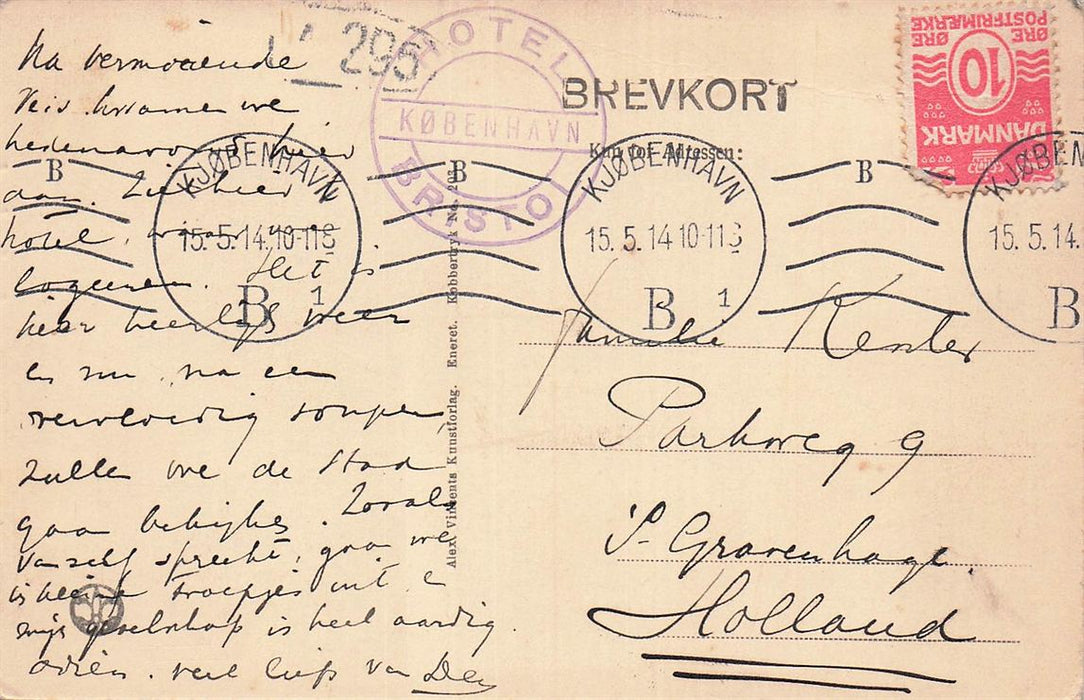 Na vermoeiende
reis kwamen we
hedenavond hier
aan. Zie hier
hotel, waar we
logeeren. Het is
hier heerlijk weer
en nu, na een
overvloedig souper
zullen we de stad
gaan bekijken. Zooals
vanzelf spreekt, gaan we
in kleine troepjes uit en
mijn gezelschap is heel aardig.
adieu. veel liefs van
295
HOTEL
KØBENHAVN
BRISTOL
BREVKORT
Kun for Adressen:
10
ØRE
ØRE
POSTFRIMÆRKE
DANMARK
KJØBENHAVN
15.5.14.10-11
B
1
KJØBENHAVN
15.5.14 10-11
B
1
KJØBEN
15.5.14.
B
B
B
B
Alex. Vincents Kunstforlag. Eneret. Kobbertryk No. 203
Familie Kesler
Parkweg 9
's-Gravenhage.
Holland